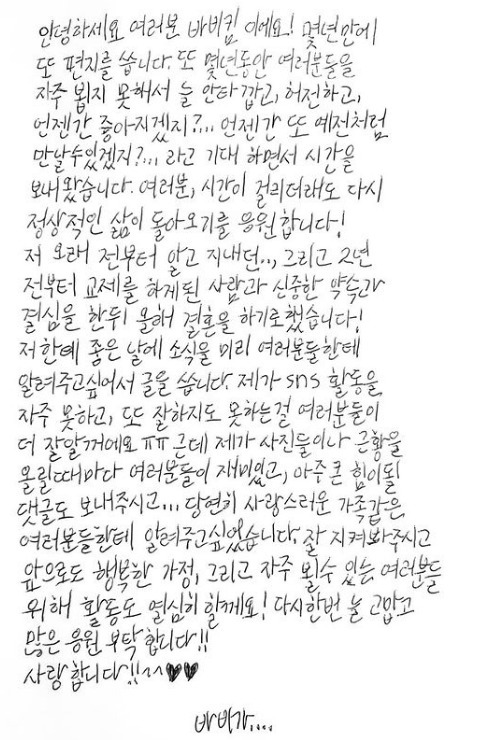 안녕하세요 여러분 바비킴 이에요! 몇년만에
또 편지를 씁니다. 또 몇년동안 여러분들을
자주 뵙지 못해서 늘 안타깝고, 허전하고,
언젠간 좋아지겠지?... 언젠간 또 예전처럼
만날수있겠지?... 라고 기대 하면서 시간을
보내왔습니다. 여러분, 시간이 걸리더래도 다시
정상적인 삶이 돌아오기를 응원합니다!
저 오래 전부터 알고 지내던.., 그리고 2년
전부터 교제를 하게된 사람과 신중한 약속과
결심을 한뒤 올해 결혼을 하기로했습니다!
저한테 좋은 날에 소식을 미리 여러분들한테
알려주고싶어서 글을 씁니다. 제가 sns 활동을
자주 못하고, 또 잘하지도 못하는걸 여러분들이
더 잘알꺼에요 ㅠㅠ 근데 제가 사진들이나 근황을
올릴때마다 여러분들이 재미있고, 아주 큰 힘이될
댓글도 보내주시고... 당연히 사랑스러운 가족같은
여러분들한테 알려주고싶었습니다. 잘 지켜봐주시고
앞으로도 행복한 가정, 그리고 자주 뵐수 있는 여러분들
위해 활동도 열심히 할께요! 다시한번 늘 고맙고
많은 응원 부탁합니다!!
사랑합니다!!^^♥♥
바비가....